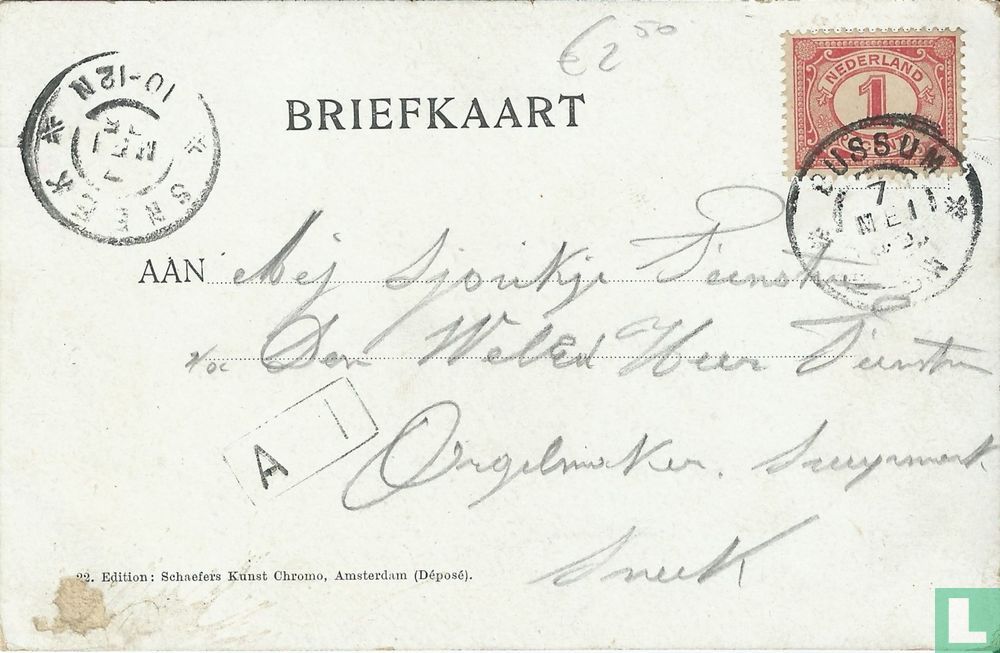 € 2 50
NEDERLAND
1
CENT
BRIEFKAART
SNEEK
10-12N
BUSSUM
7
MEI
AAN Mej Sjoukje Feenstra
Den WelEd Heer Feenstra
A 1
Orgelmaker.
Sneek
22. Edition: Schaefers Kunst Chromo, Amsterdam (Déposé).
L